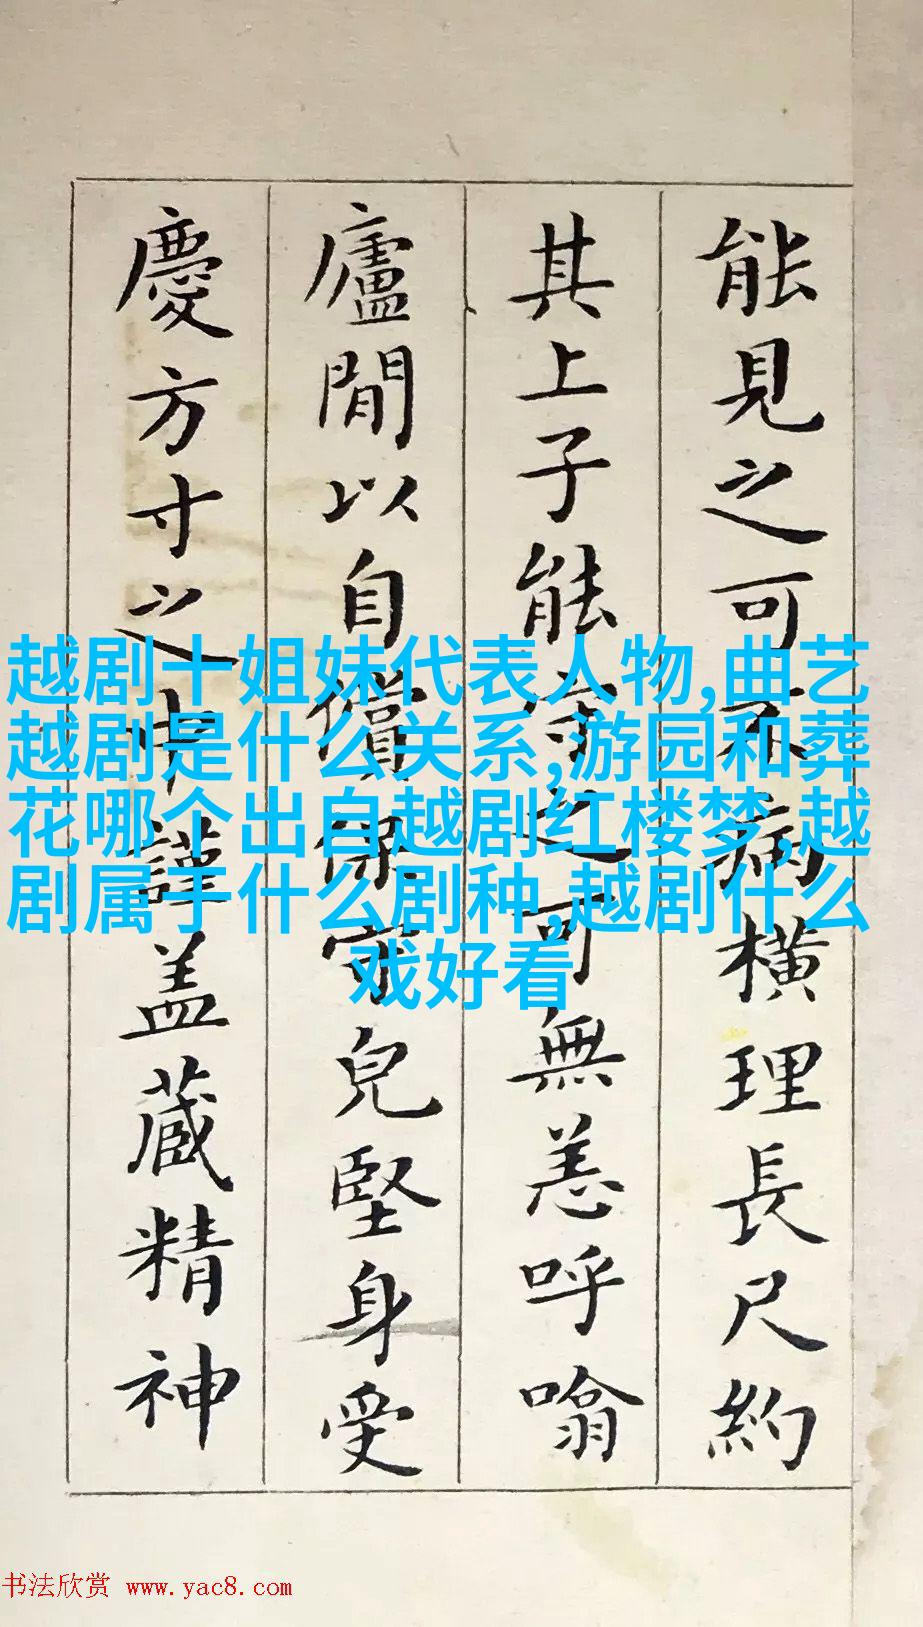 能見之可不病橫理長尺約
其上子能守之可無恙呼噏
廬閒以自償保守兒堅身受
慶方寸之中謹盖藏精神
越剧十姐妹代表人物,曲艺
越剧是什么关系,游园和葬
花哪个出自越剧红楼梦,越
剧属于什么剧种,越剧什么
戏好看
书法欣赏 www.yac8.com